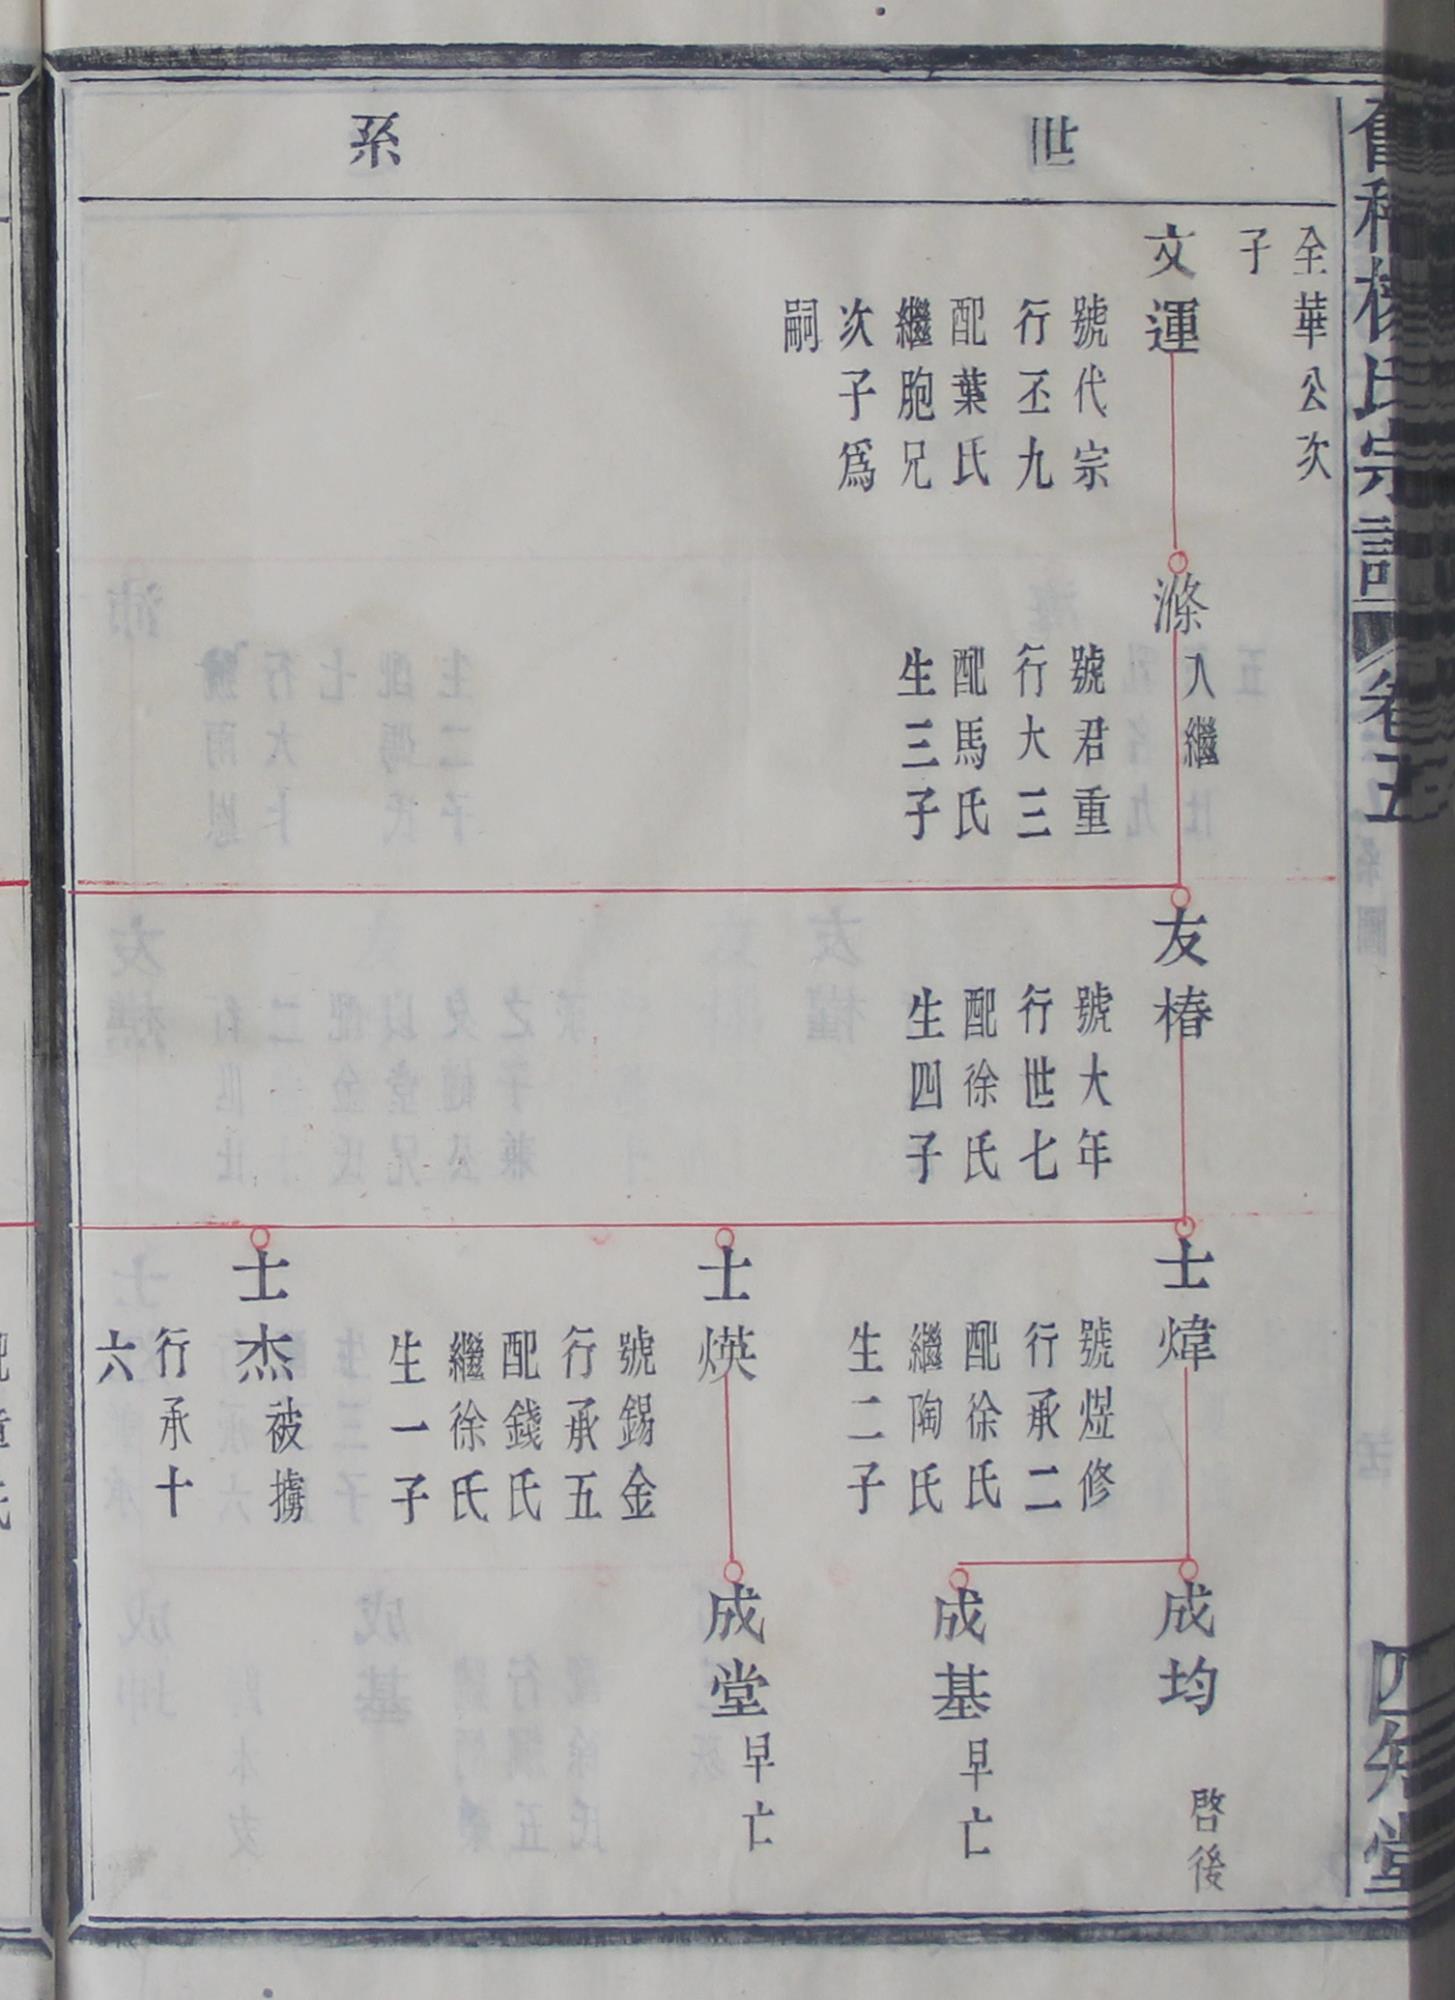 世系
全華公次
子
文運
號代宗
行丕九
配葉氏
繼胞兄
次子爲
嗣
滌入繼
號君重
行大三
配馬氏
生三子
友椿
號大年
行世七
配徐氏
生四子
士煒
號煜修
行承二
配徐氏
繼陶氏
生二子
士煐
號錫金
行承五
配錢氏
繼徐氏
生一子
士杰被擄
行承十
六
成均 啓後
成基早亡
成堂早亡
楊氏宗譜
卷五
四知堂